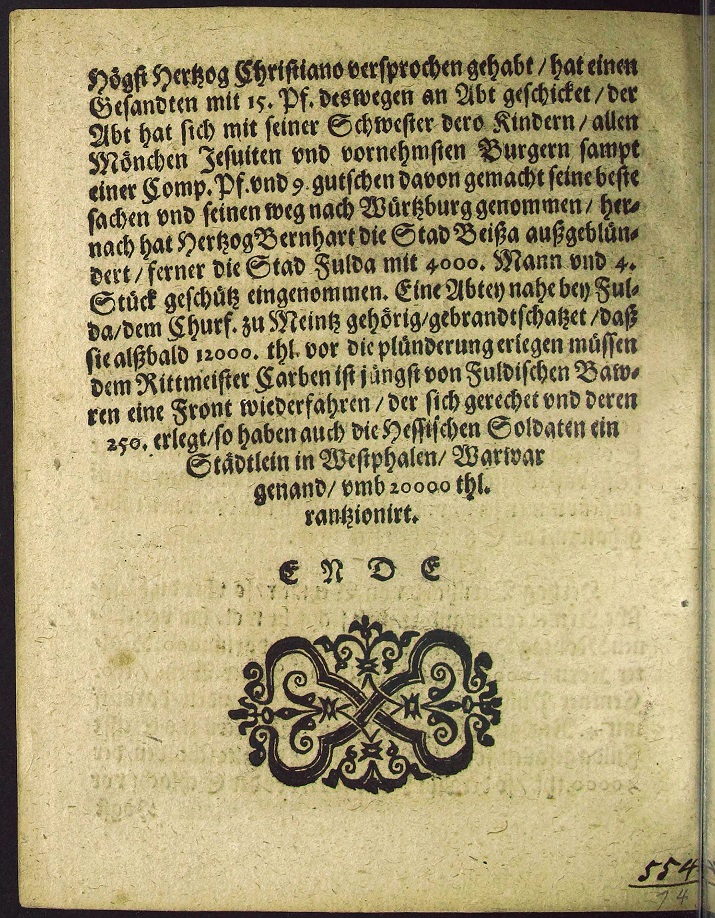 Högst Hertzog Christiano versprochen gehabt / hat einen
Gesandten mit 15. Pf. deswegen an Abt geschicket / der
Abt hat sich mit seiner Schwester dero Kindern / allen
Mönchen Jesuiten vnd vornehmsten Burgern sampt
einer Comp. Pf. vnd 9. gutschen davon gemacht seine beste
sachen vnd seinen weg nach Würtzburg genommen / her-
nach hat Hertzog Bernhart die Stad Beißa außgeblün-
dert / ferner die Stad Fulda mit 4000. Mann vnd 4.
Stück geschütz eingenommen. Eine Abtey nahe bey Ful-
da/dem Churf. zu Meintz gehörig/gebrandtschatzet /daß
sie alßbald 12000. thl. vor die plünderung erlegen müssen
dem Rittmeister Carben ist jüngst von Fuldischen Baw-
ren eine Front wiederfahren / der sich gerechet vnd deren
250. erlegt/so haben auch die Hessischen Soldaten ein
Städtlein in Westphalen/ Warwar
genand/ vmb 20000 thl.
rantzionirt.
E N D E
554